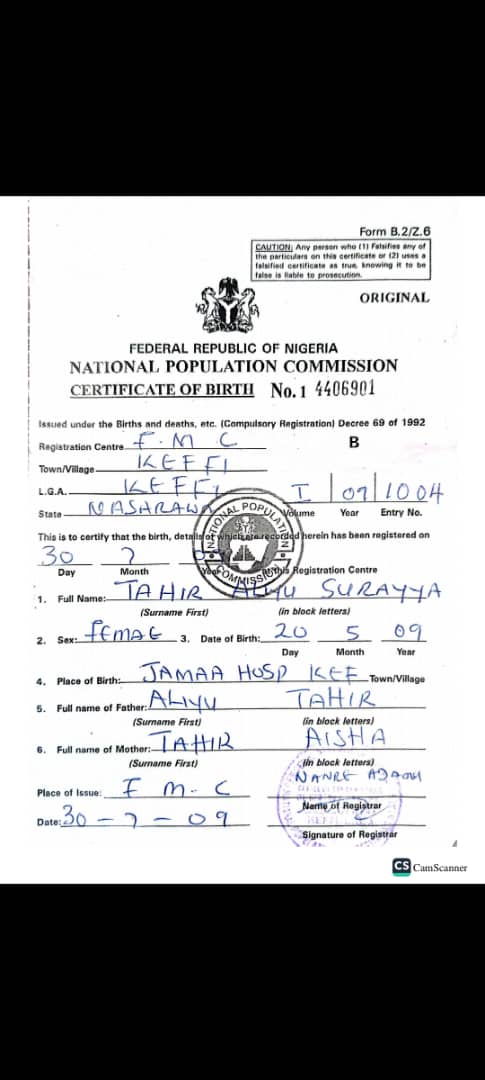 Form B.2/Z.6
CAUTION: Any person who (1) Falsifies any of
the particulars on this certificate or (2) uses a
falsified certificate as true, knowing it to be
false is liable to prosecution.
ORIGINAL
FEDERAL REPUBLIC OF NIGERIA
NATIONAL POPULATION COMMISSION
CERTIFICATE OF BIRTH No. 1 4406901
Issued under the Births and deaths, etc. (Compulsory Registration) Decree 69 of 1992
Registration Centre F. M C B
Town/Village KEFFI
L.G.A. KEFFI I 09 1004
State NASARAWA Volume Year Entry No.
NATIONAL POPULATION COMMISSION
This is to certify that the birth, details of which are recorded herein has been registered on
30 7
Day Month Year at this Registration Centre
1. Full Name: TAHIR ALIYU SURAYYA
(Surname First) (in block letters)
2. Sex: FEMALE 3. Date of Birth: 20 5 09
Day Month Year
4. Place of Birth: JAMAA HOSP KEF Town/Village
5. Full name of Father: ALIYU TAHIR
(Surname First) (in block letters)
6. Full name of Mother: TAHIR AISHA
(Surname First) (in block letters)
Place of Issue: F M. C NANRE
Name of Registrar
Date: 30 - 7 - 09
Signature of Registrar
CS CamScanner